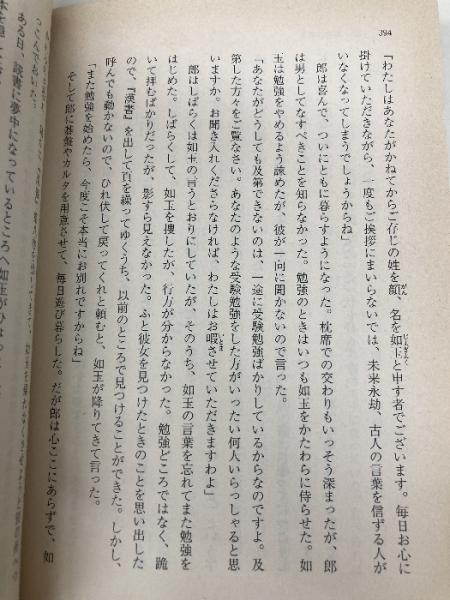 394
「わたしはあなたがかねてからご存じの姓を顔、名を如玉と申す者でございます。毎日お心に
掛けていただきながら、一度もご挨拶にまいらないでは、未来永劫、古人の言葉を信ずる人が
いなくなってしまうでしょうからね」
郎は喜んで、ついにともに暮らすようになった。枕席での交わりもいっそう深まったが、郎
は男としてなすべきことを知らなかった。勉強のときはいつも如玉をかたわらに侍らせた。如
玉は勉強をやめるよう諫めたが、彼が一向に聞かないので言った。
「あなたがどうしても及第できないのは、一途に受験勉強ばかりしているからなのですよ。及
第した方々をご覧なさい。あなたのような受験勉強をした方がいったい何人いらっしゃると思
いますか。お聞き入れくださらなければ、わたしはお暇させていただきますわよ」
郎はしばらくは如玉の言うとおりにしていたが、そのうち、如玉の言葉を忘れてまた勉強を
はじめた。しばらくして、如玉を捜したが、行方が分からなかった。勉強どころではなく、跪
いて拝むばかりだったが、影すら見えなかった。ふと彼女を見つけたときのことを思い出した
ので、『漢書』を出して頁を繰ってゆくうち、以前のところで見つけることができた。しかし、
呼んでも動かないので、ひれ伏して戻ってくれと頼むと、如玉が降りてきて言った。
「また勉強を始めたら、今度こそ本当にお別れですからね」
そして郎に碁盤やカルタを用意させて、毎日遊び暮らした。だが郎は心ここにあらずで、如
ある日、読書に夢中になっているところへ如玉がひょっ